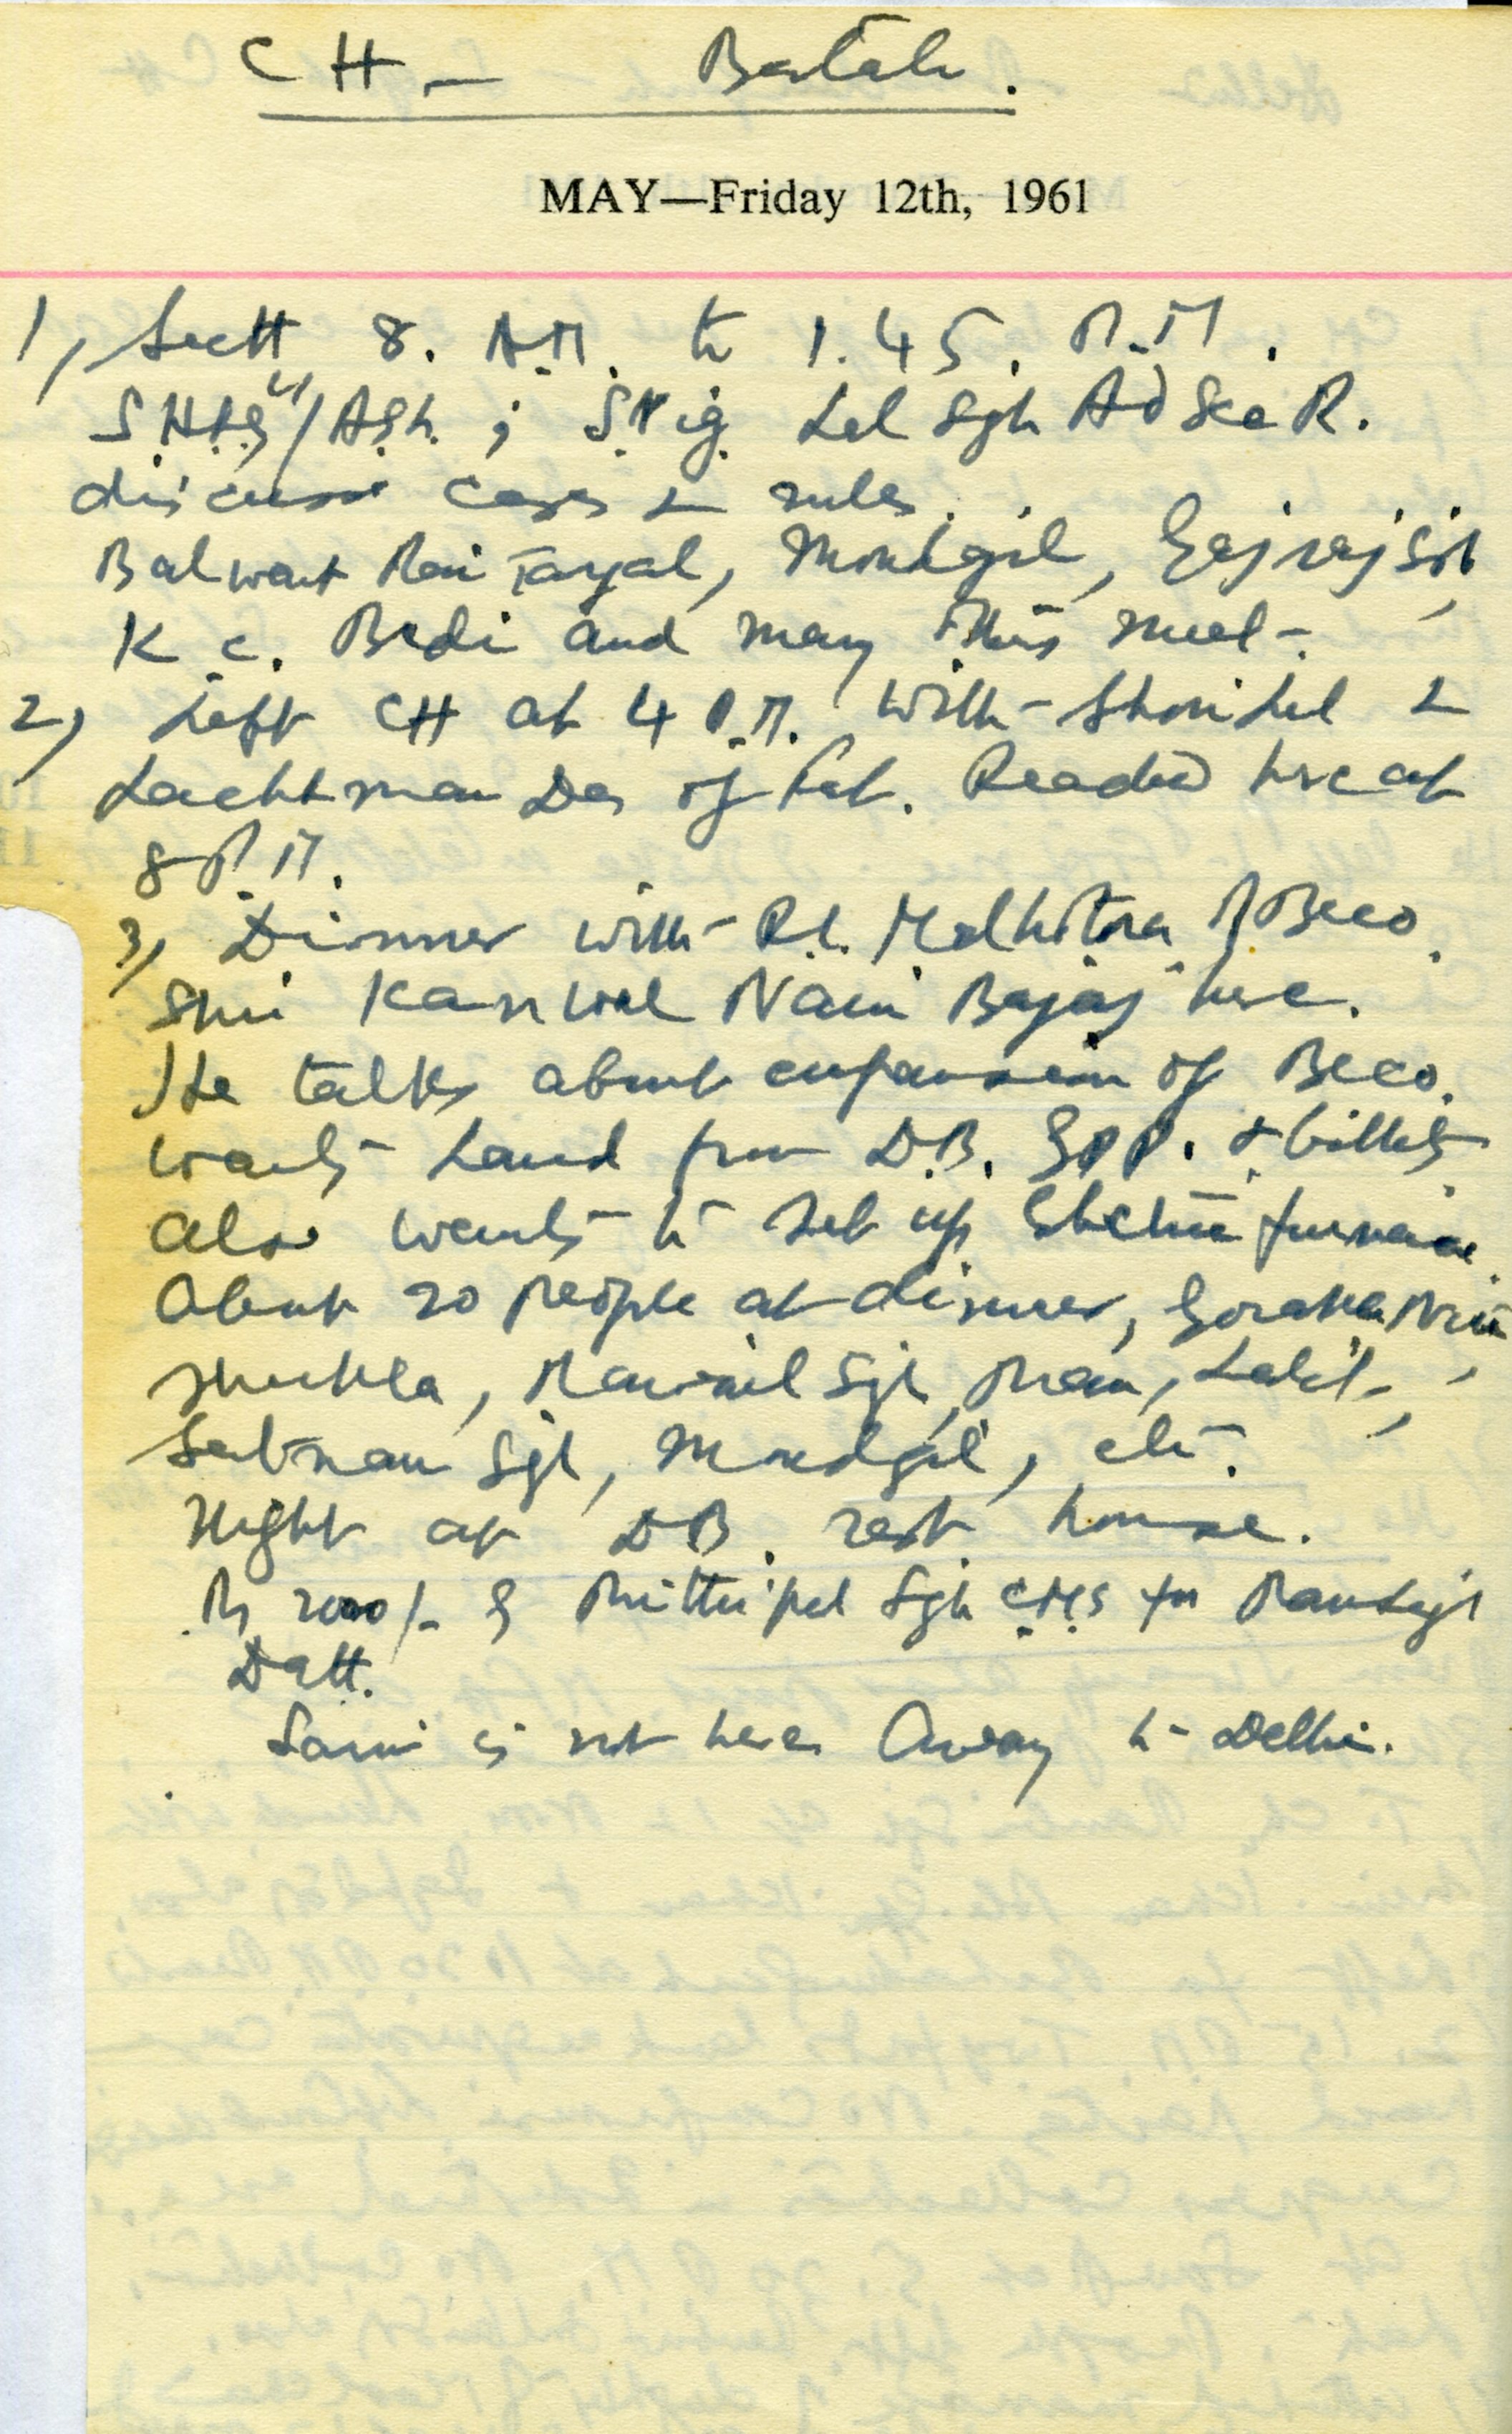 CH - Batala.
MAY—Friday 12th, 1961
1) Sectt 8. A.M. to 1.45. P.M.
Lal Sgh Ad See R.
discuss cases & rules.
Balwant Rai Tayal, Mondgil, Gajraj Sgh,
K. C. Bedi and many others meet.
2) Left CH at 4 P.M. with Shori Lal &
Lachhman Das of Reached here at
8 P.M.
3) Dinner with R.L. Malhotra of Beco.
Shri Kanwal Nain Bajaj here.
He talks about expansion of Beco.
wants Land from D.B. & billets
also wants to set up Electric furnace.
About 20 people at dinner, Gorakh Nath
Shukla, Sgh, Mohan, Lalit,
Satnam Sgh, Mondgil, etc.
Night at DB. rest house.
Rs 2000/- G Prithipal Sgh CHS for Ranbgir
Datt.
is not here. Away to Delhi.